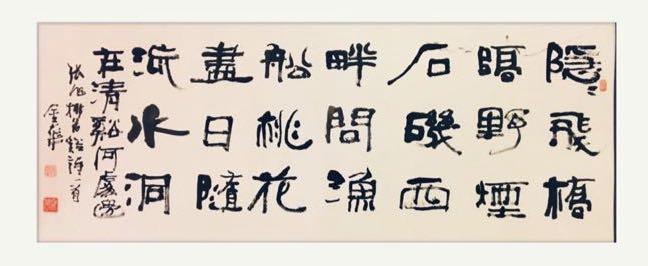 隱〻飛橋
隔野煙
石磯西
畔問漁
船桃花
盡日隨
流水洞
在清谿何處邊
張旭桃花谿詩一首